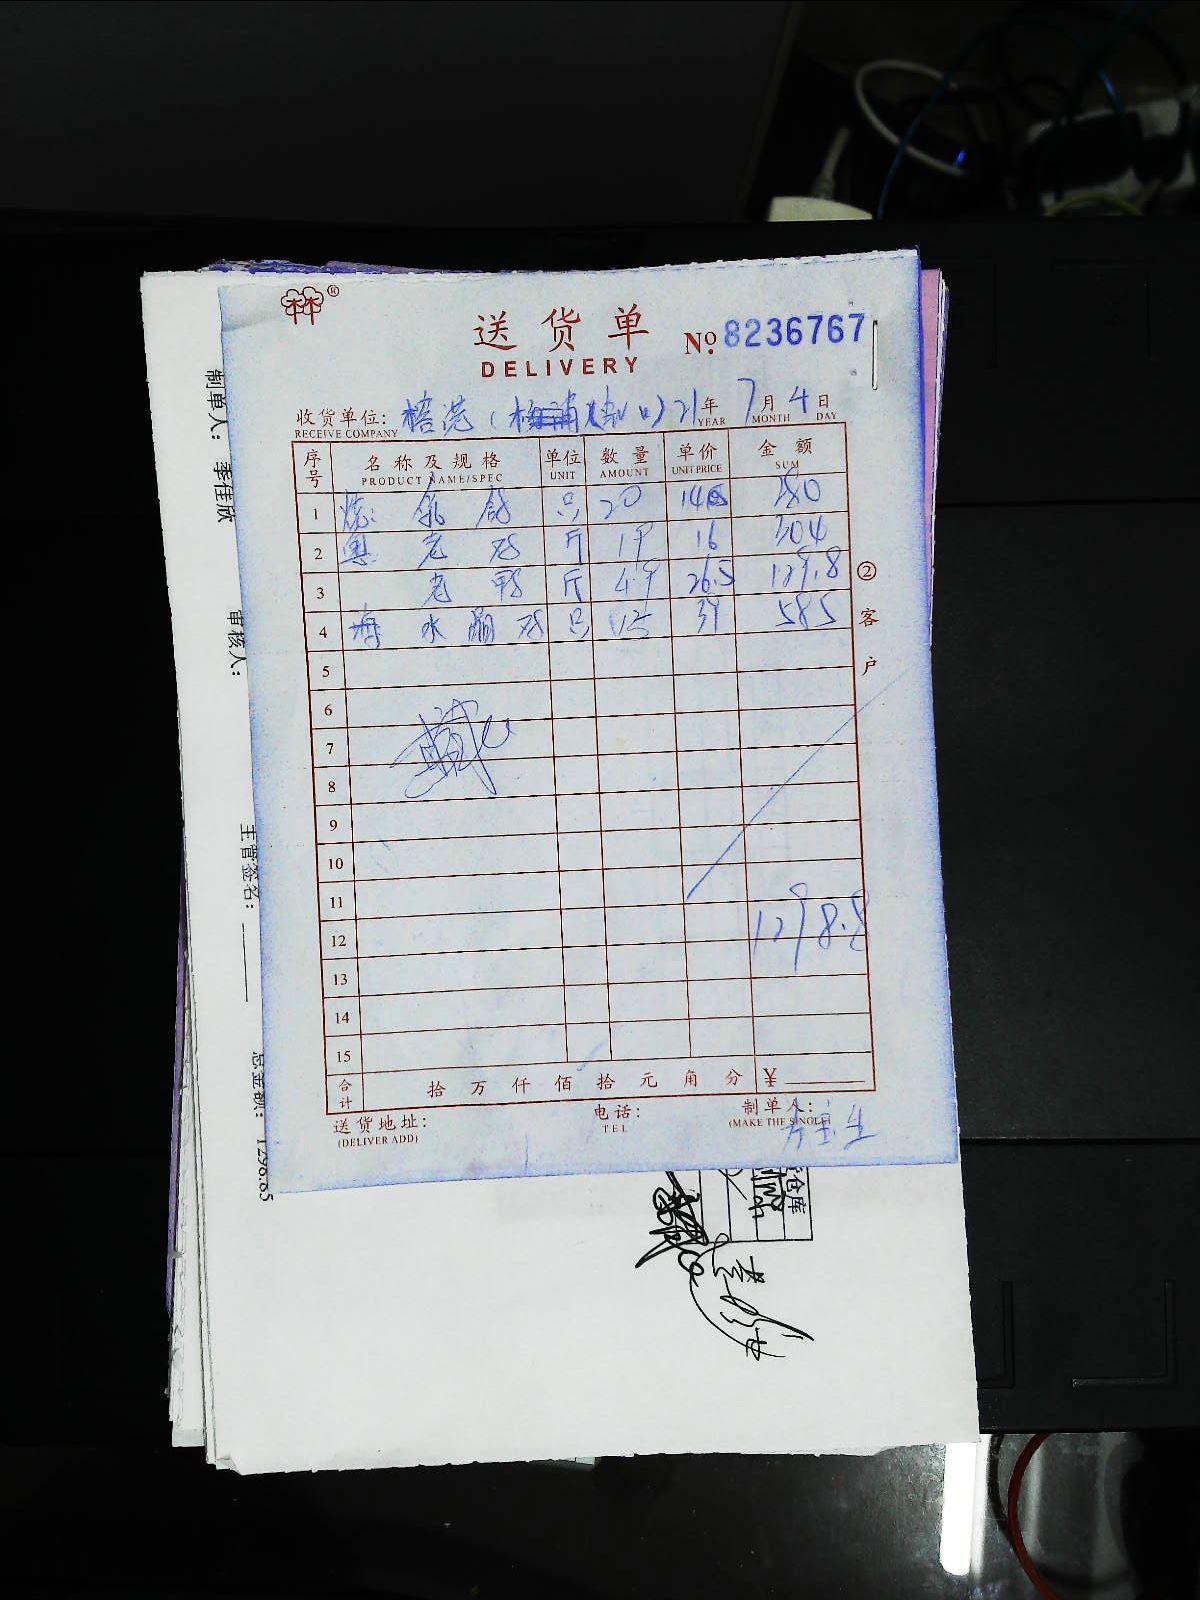 林林®
送货单
DELIVERY
No. 8236767
收货单位: 21年 7月 4日
RECEIVE COMPANY YEAR MONTH DAY
序号 名称及规格 单位 数量 单价 金额
PRODUCT NAME/SPEC UNIT AMOUNT UNIT PRICE SUM
1 乳鸽 只 20 280
2 老鸡 斤 19 16 304
3 老鸭 斤 4.9 26.5 129.8
4 水 鸡 只 15 39 585
5
6
7
8
9
10
11
12 1298.8
13
14
15
合计 拾 万 仟 佰 拾 元 角 分 ¥
送货地址: 电话: 制单人:
(DELIVER ADD) TEL (MAKE THE SINGLE)
② 客户
制单人: 季佳欣
审核人:
主管签名:
总金额: 1298.85
仓库